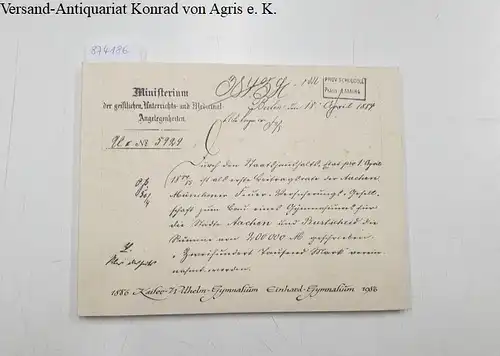 Versand-Antiquariat Konrad von Agris e. K.
874186
Ministerium
der geistlichen, Unterrichts- und Medizinal-
Angelegenheiten.
PROV. SCHULCOLL
Berlin, den 18 April 1884
No 5924
Durch den Staatshaushalts-Etat pro 1. April
1884/85 ist als erste Beitragsrate der Aachen
Münchener Feuer-Versicherungs-Gesell-
schaft zum Bau eines Gymnasiums für
die Städte Aachen und Burtscheid die
Summe von 200000 M geschrieben
Zweihundert Tausend Mark verein-
nahmt worden.
1886 Kaiser-Wilhelm-Gymnasium Einhard-Gymnasium 1986